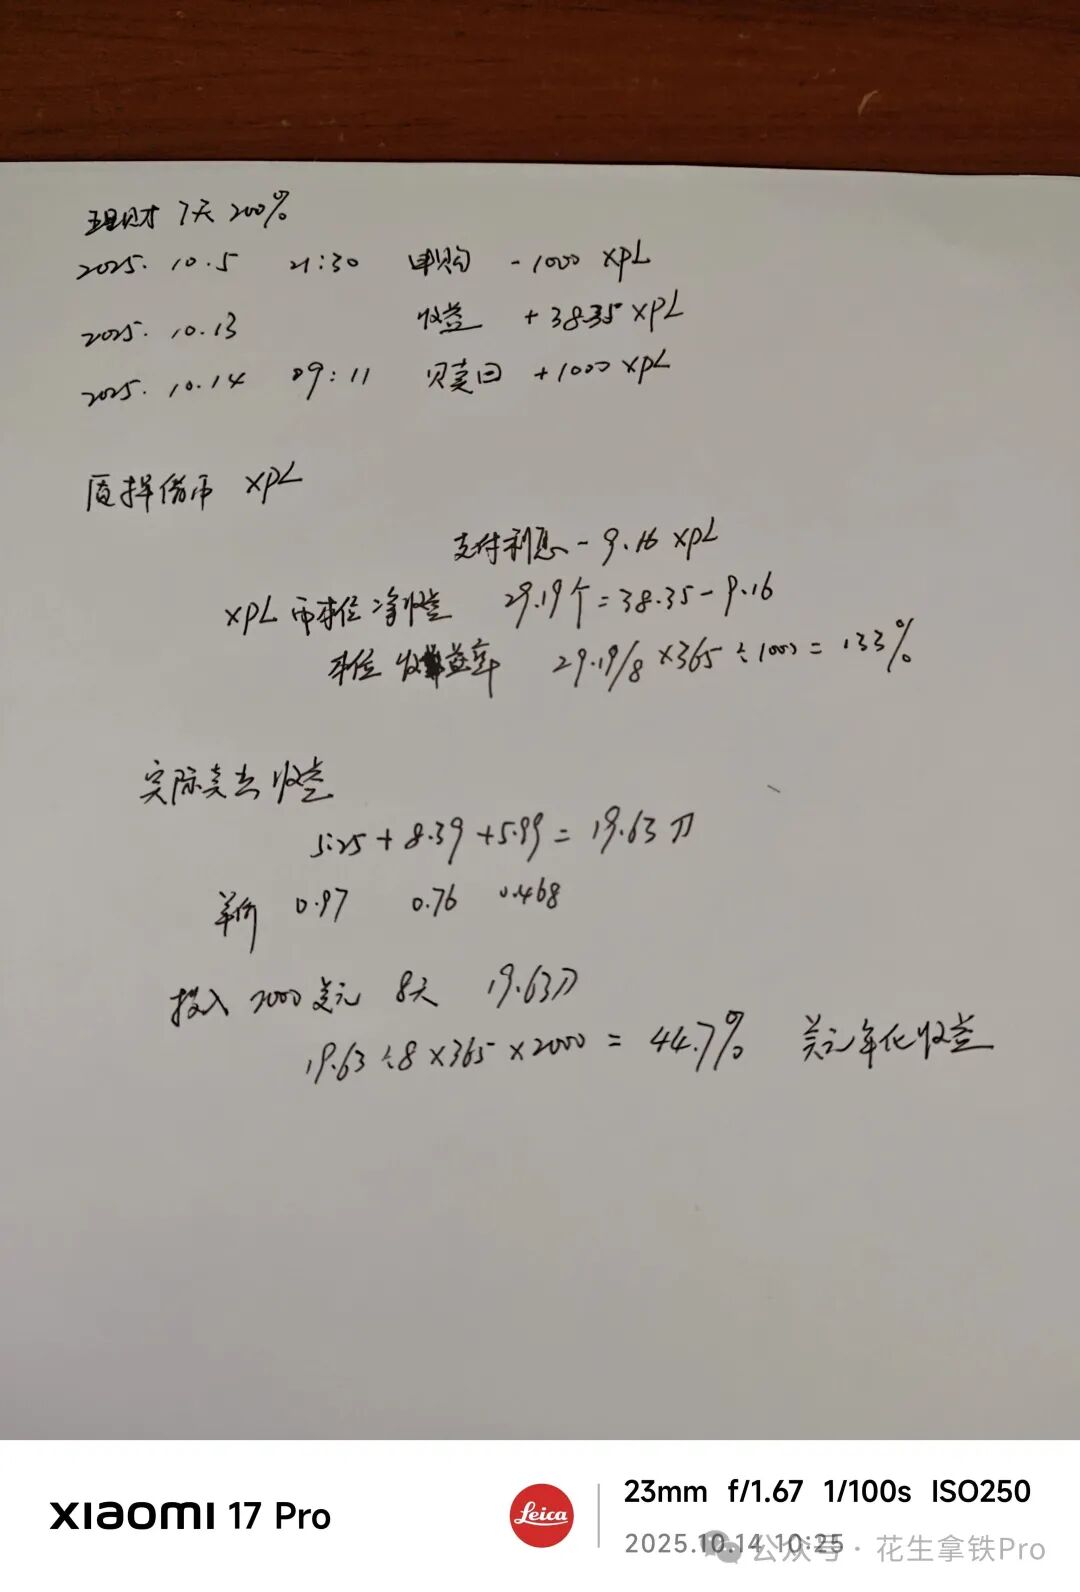 理财 7天 200%
2025.10.5 21:30 申购 -1000 XPL
2025.10.13 收益 +38.35 XPL
2025.10.14 09:11 赎回 +1000 XPL
质押借币 XPL
支付利息 -9.16 XPL
XPL 币本位净收益 29.19个=38.35-9.16
本位 收益率 29.19/8×365÷1000=133%
实际卖出收益
5.25+8.39+5.99=19.63刀
单价 0.97 0.76 0.468
投入 2000美元 8天 19.63刀
19.63÷8×365×2000=44.7% 美元年化收益
XIAOMI 17 Pro
Leica
23mm f/1.67 1/100s ISO250
2025.10.14 10:25
公众号·花生拿铁Pro